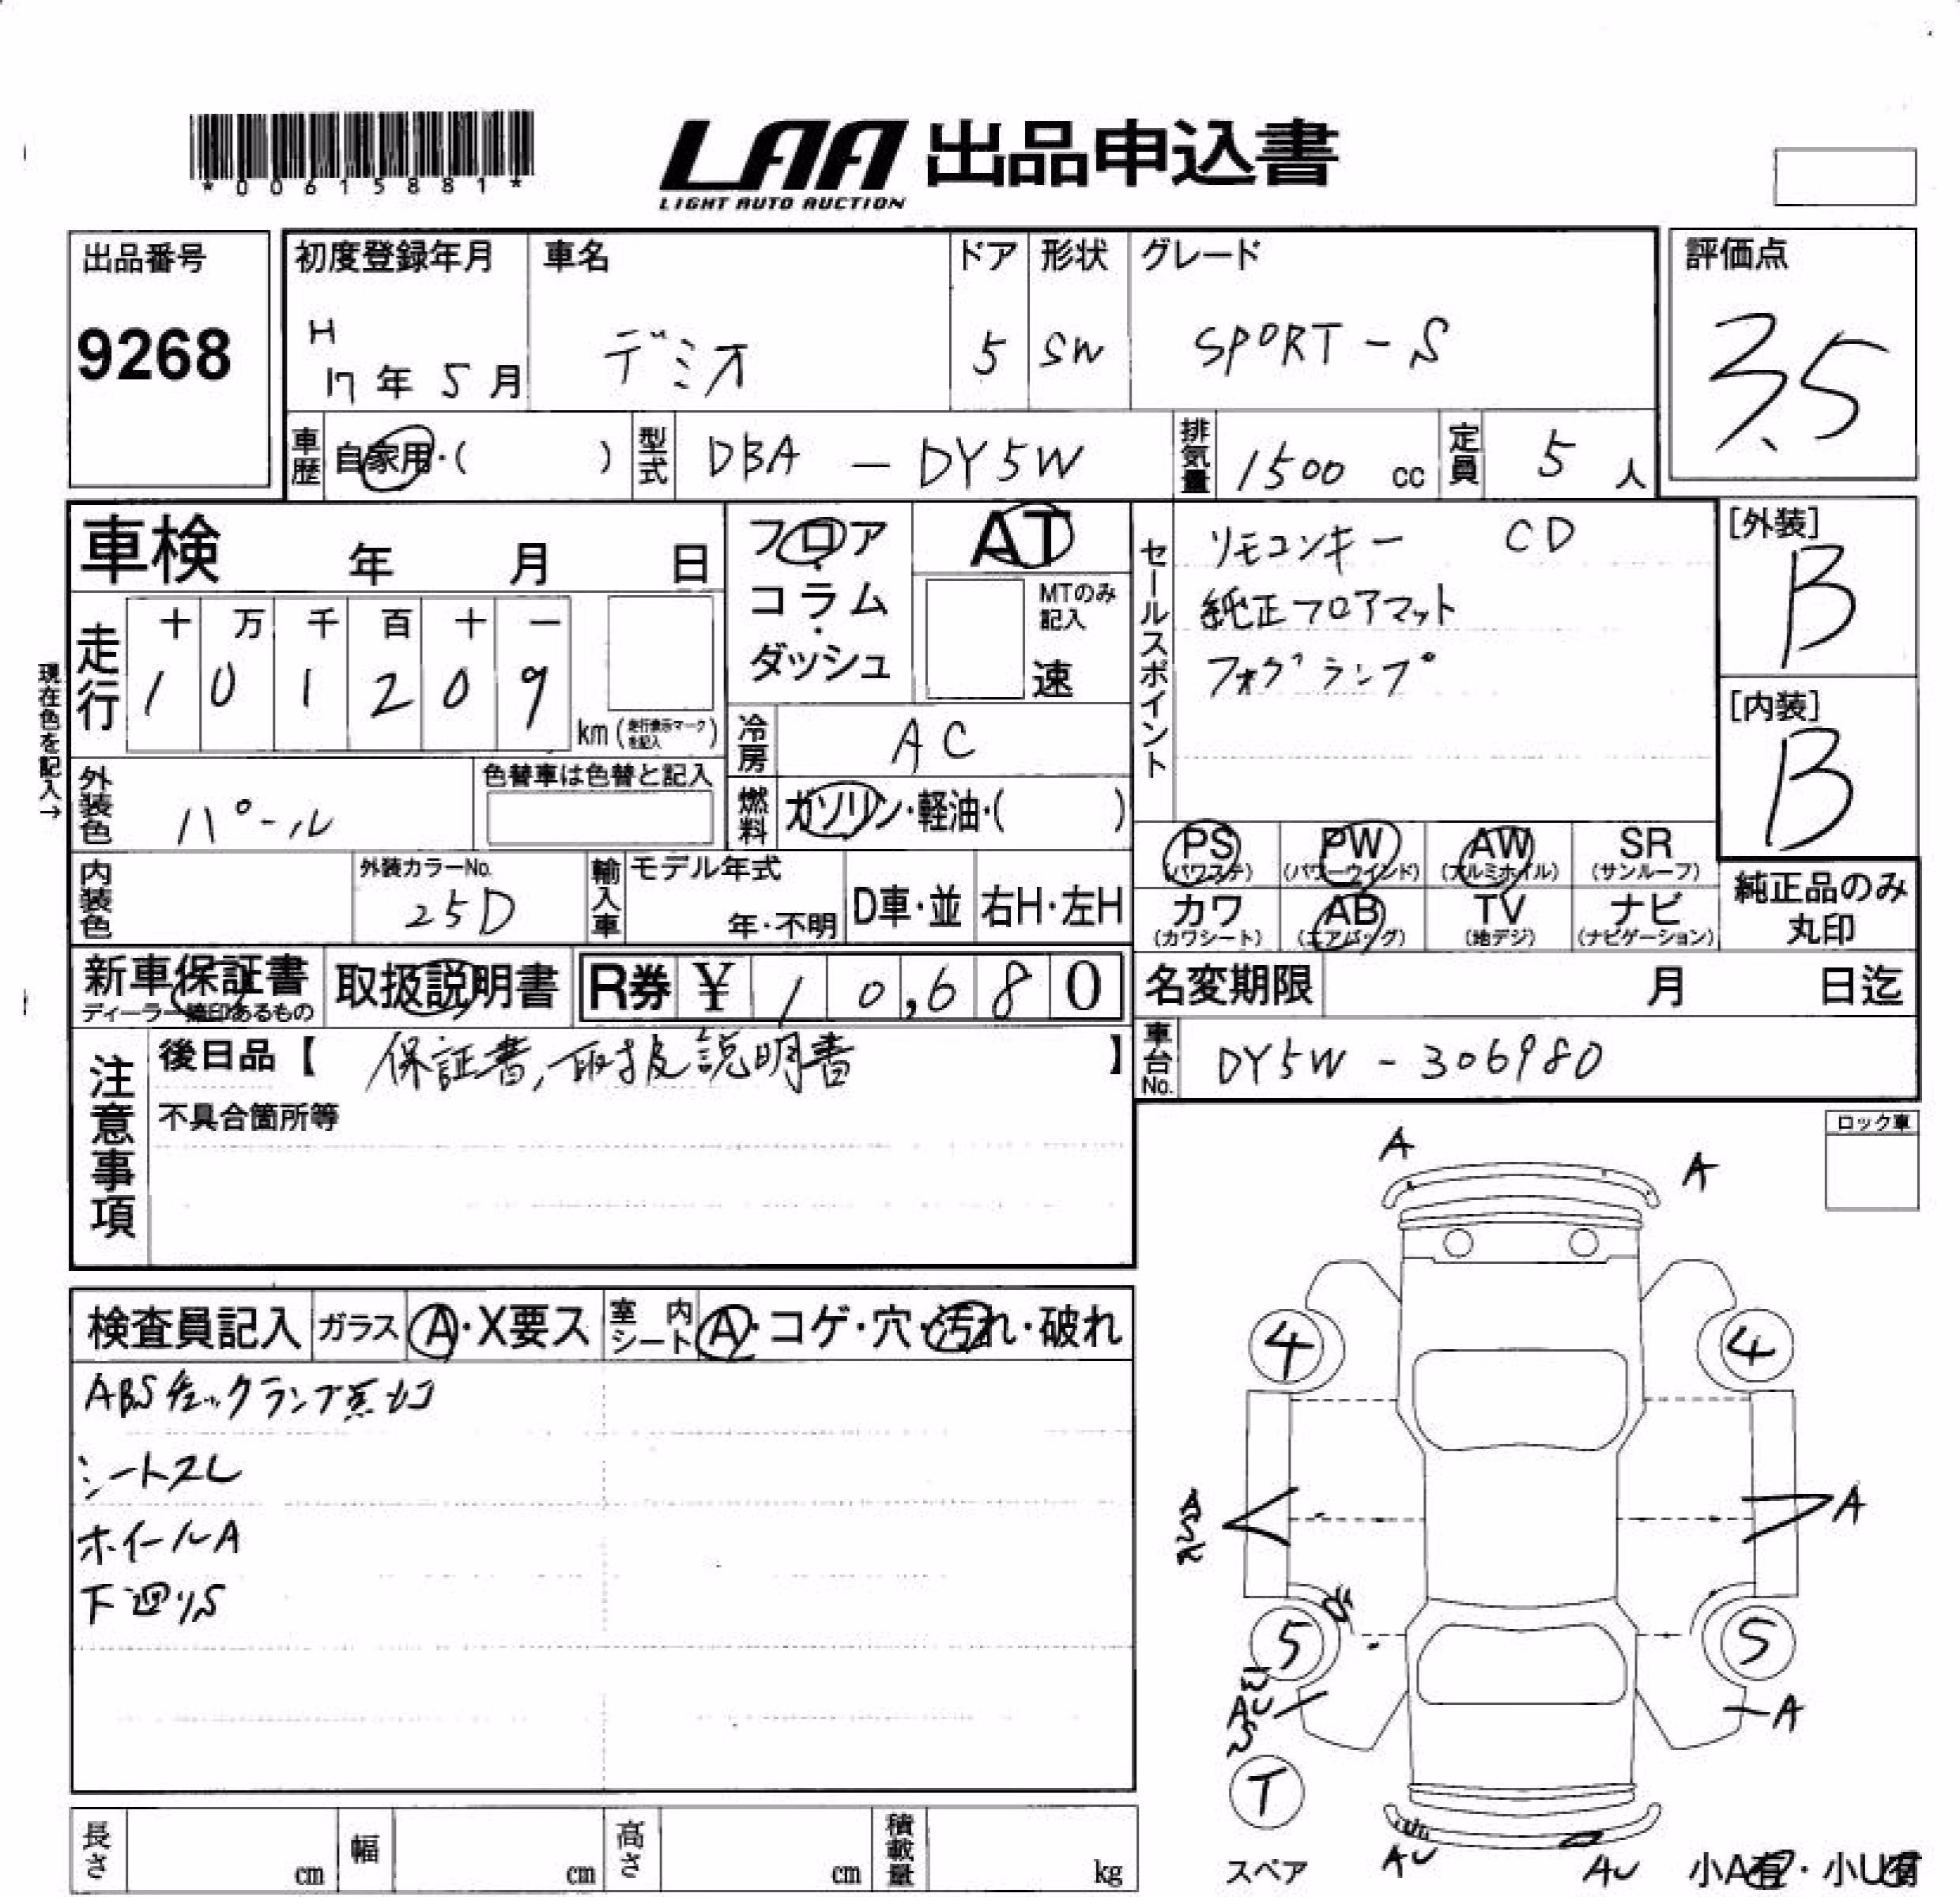 *00615881*
LAA 出品申込書
LIGHT AUTO AUCTION
出品番号
9268
初度登録年月 車名 ドア 形状 グレード
H
17年 5月 デミオ 5 SW SPORT-S
評価点
3.5
車歴 自家用・( ) 型式 DBA - DY5W 排気量 1500 cc 定員 5 人
車検 年 月 日
フロア・
コラム・
ダッシュ
AT
MTのみ
記入
速
現在色を記入→
走行 十 万 千 百 十 一
1 0 1 2 0 9
km (走行表示マークを記入)
冷房 AC
燃料 ガソリン・軽油・( )
外装色 パール
色替車は色替と記入
内装色
外装カラーNo.
25D
輸入車 モデル年式
年・不明 D車・並 右H・左H
セールスポイント
リモコンキー CD
純正フロアマット
フォグランプ
[外装]
B
[内装]
B
PS PW AW SR
(パワステ) (パワーウインド) (アルミホイル) (サンルーフ)
カワ AB TV ナビ
(カワシート) (エアバッグ) (地デジ) (ナビゲーション)
純正品のみ
丸印
新車保証書
ディーラー捺印あるもの
取扱説明書
R券 ¥ 10,680
名変期限 月 日迄
車台No. DY5W-306980
注意事項
後日品【 保証書,取扱説明書 】
不具合箇所等
ロック車
検査員記入 ガラス A・X要ス 室内シート A・コゲ・穴・汚れ・破れ
ABSチェックランプ点灯
シートスレ
ホイールA
下廻りS
A
A
4
4
A
5
S
AU
A
T
スペア
AU
AU
小A有・小U有
長さ cm 幅 cm 高さ cm 積載量 kg